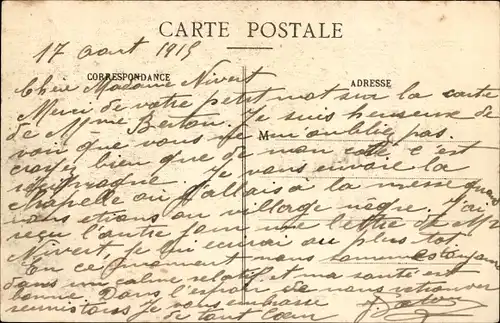 CARTE POSTALE
17 aout 1915
CORRESPONDANCE
ADRESSE
Chère Madame Nivert
Merci de votre petit mot sur la carte
de Mme Berton. Je suis heureuse de
voir que vous ne m'oubliez pas.
M
croyez bien que de mon coté c'est
réciproque. Je vous envoie la
chapelle où j'allais à la messe quand
nous etions au village nègre. J'ai
reçu l'autre jour une lettre de Mr
Nivert, je lui ecrirai au plus tot
En ce moment nous sommes toujours
dans une calme relatif et ma santé est
bonne. Dans l'espoir de nous retrouver
reunis tous je vous embrasse
de tout cœur